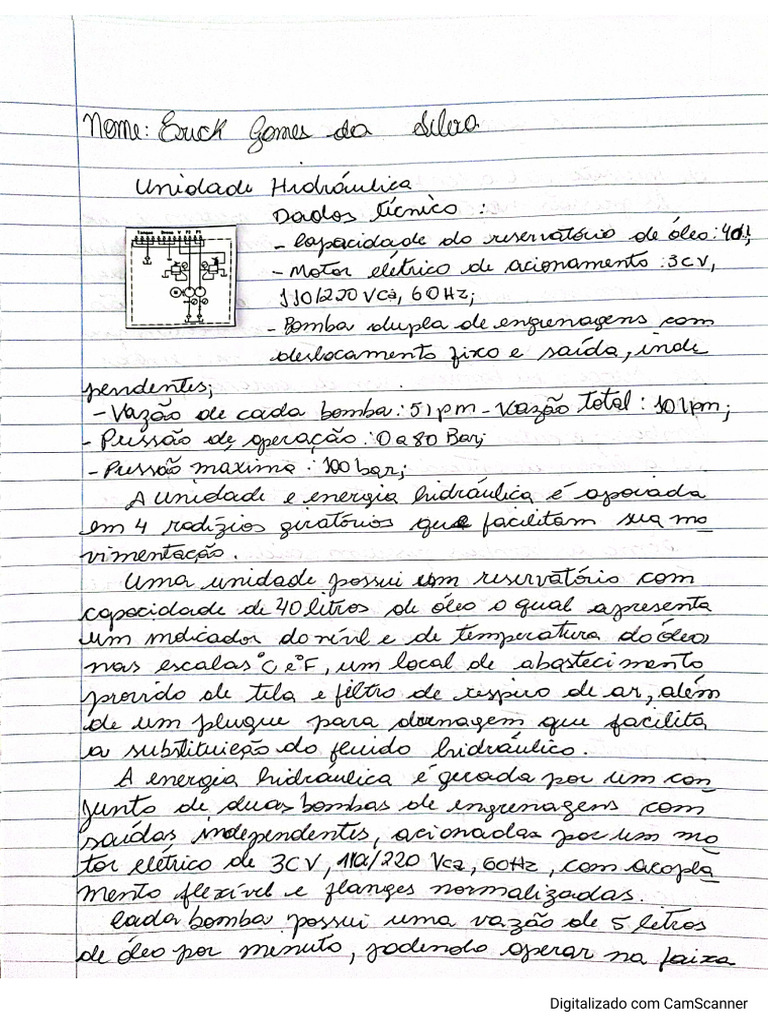 Nome: Erick Gomes da Silva
Unidade Hidráulica
Dados técnico :
- Capacidade do reservatório de óleo: 40l;
- Motor elétrico de acionamento : 3CV,
110/220 Vca, 60Hz;
- Bomba dupla de engrenagens com
deslocamento fixo e saída, inde
pendentes;
- Vazão de cada bomba: 5 lpm - Vazão total : 10 lpm;
- Pressão de operação : 0 a 80 Bar;
- Pressão maxima : 100 bar;
A unidade e energia hidráulica é apoiada
em 4 rodízios giratórios que facilitam sua mo
vimentação.
Uma unidade possui um reservatório com
capacidade de 40 litros de óleo o qual apresenta
um indicador do nível e de temperatura do óleo,
nas escalas °C e °F, um local de abastecimento
provido de tela e filtro de respiro de ar, além
de um plugue para drenagem que facilita
a substituição do fluido hidráulico.
A energia hidráulica é gerada por um con
junto de duas bombas de engrenagens com
saídas independentes, acionadas por um mo
tor elétrico de 3CV, 110/220 Vca, 60Hz, com acopla
mento flexível e flanges normalizadas.
Cada bomba possui uma vazão de 5 litros
de óleo por minuto, podendo operar na faixa
Digitalizado com CamScanner